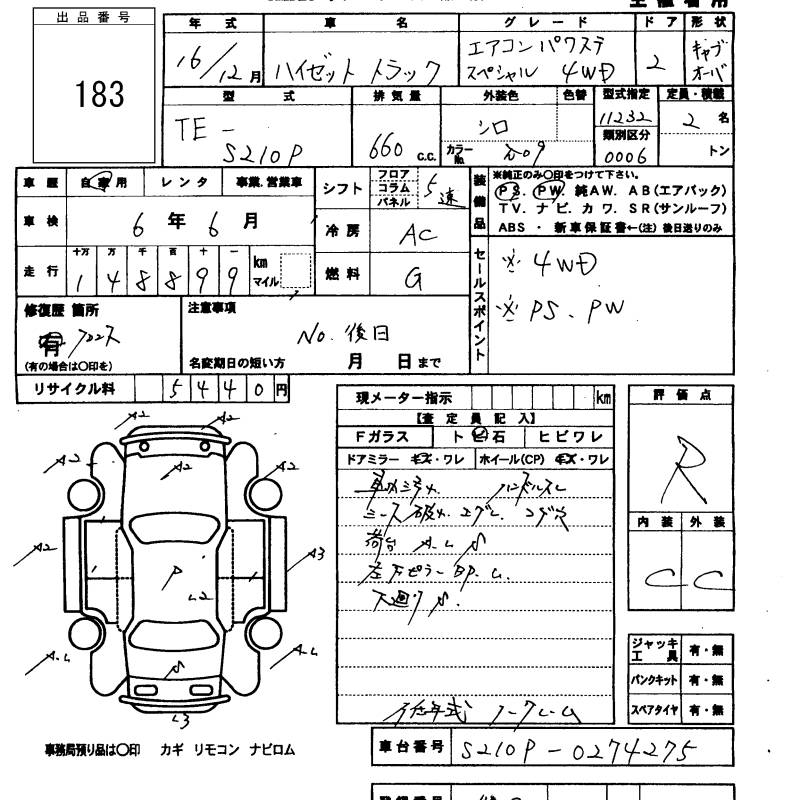 出品番号
183
年式 車名 グレード ドア 形状
16/12月 ハイゼット トラック エアコン パワステ スペシャル 4WD 2 キャブオーバ
型式 排気量 外装色 色替 型式指定 定員・積載
TE-S210P 660 c.c. シロ カラーNo. 11232 類別区分 0006 2名 トン
車歴 自家用 レンタ 事業.営業車
車検 6年6月
走行 十万 万 千 百 十 一
148899 km マイル
シフト フロア コラム パネル 5速
冷房 AC
燃料 G
装備品 ※純正のみ○印をつけて下さい。
PS. PW. 純AW. AB(エアバック)
TV. ナビ. カワ. SR(サンルーフ)
ABS ・ 新車保証書←(注) 後日送りのみ
セールスポイント
※ 4WD
※ PS. PW
修復歴 箇所
有
(有の場合は○印を)
注意事項
No. 後日
名変期日の短い方 月 日まで
リサイクル料 5440円
現メーター指示 km
【査定員記入】
Fガラス ト 石 ヒビワレ
ドアミラー キズ・ワレ ホイール(CP) キズ・ワレ
ハンドルスレ
荷台 A.L
左 ピラー BP.
下廻り
低年式
評価点
R
内装 外装
C C
A2 A2
A2 A2 A2
A2 A3
P L2
A.L A.L
L3
ジャッキ工具 有・無
パンクキット 有・無
スペアタイヤ 有・無
事務局預り品は○印 カギ リモコン ナビロム
車台番号 S210P-0274275